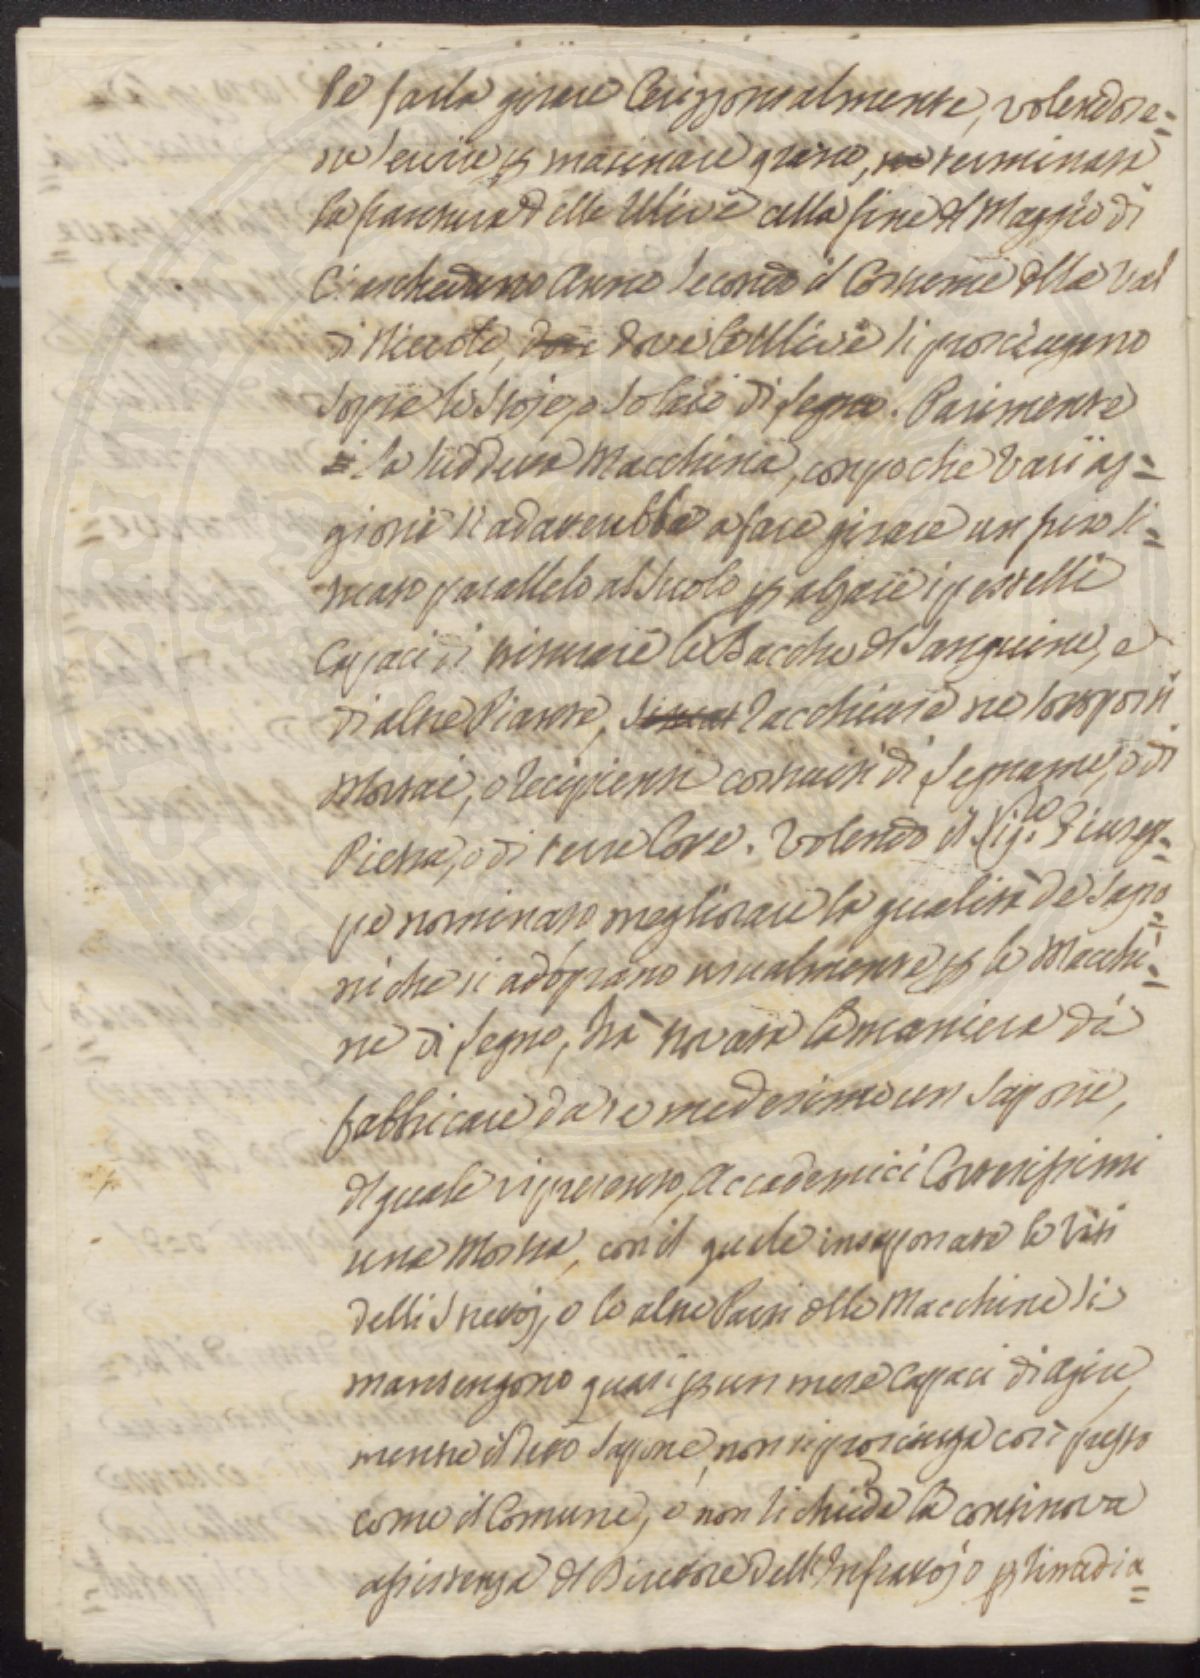 Pe farla girare Orizzontalmente, volendose=
ne servire p macinare grano, terminata
la frantura delle Ulive alla fine del Maggio di
Ciascheduno Anno secondo il Costume della Val
di Nievole, dove le Ulive si prosciugano
sopra le Stoje, o Solai di Legno. Parimente
la suddetta Macchina, con poche variaz=
gioni si adatterebbe a fare girare un fuso si=
tuato parallelo al suolo p alzare i pestelli
capaci di triturare le Bacche del Sanguine, e
di altre Piante, racchiuse ne loro
Mortai, o recipienti costruiti di Legname, o di
Pietra, o di terre Cotte. Volendo il Sig.re Giusep=
pe nominato megliorare la qualità de Sapo=
ni che si adoprano usualmente p le Macchi=
ne di Legno, hà trovata la maniera di
fabbricare da se medesimo un Sapone,
del quale vi presento, Accademici Cortesissimi
una Mostra, con il quale insaponate le Viti
delli Strettoj, o le altre Parti delle Macchine si
mantengono quasi p un mese capaci di agire,
mentre il detto Sapone, non si prosciuga così presto
come il Comune, e non richiede la continova
assistenza del Direttore dell'Infrattojo p rimedia=